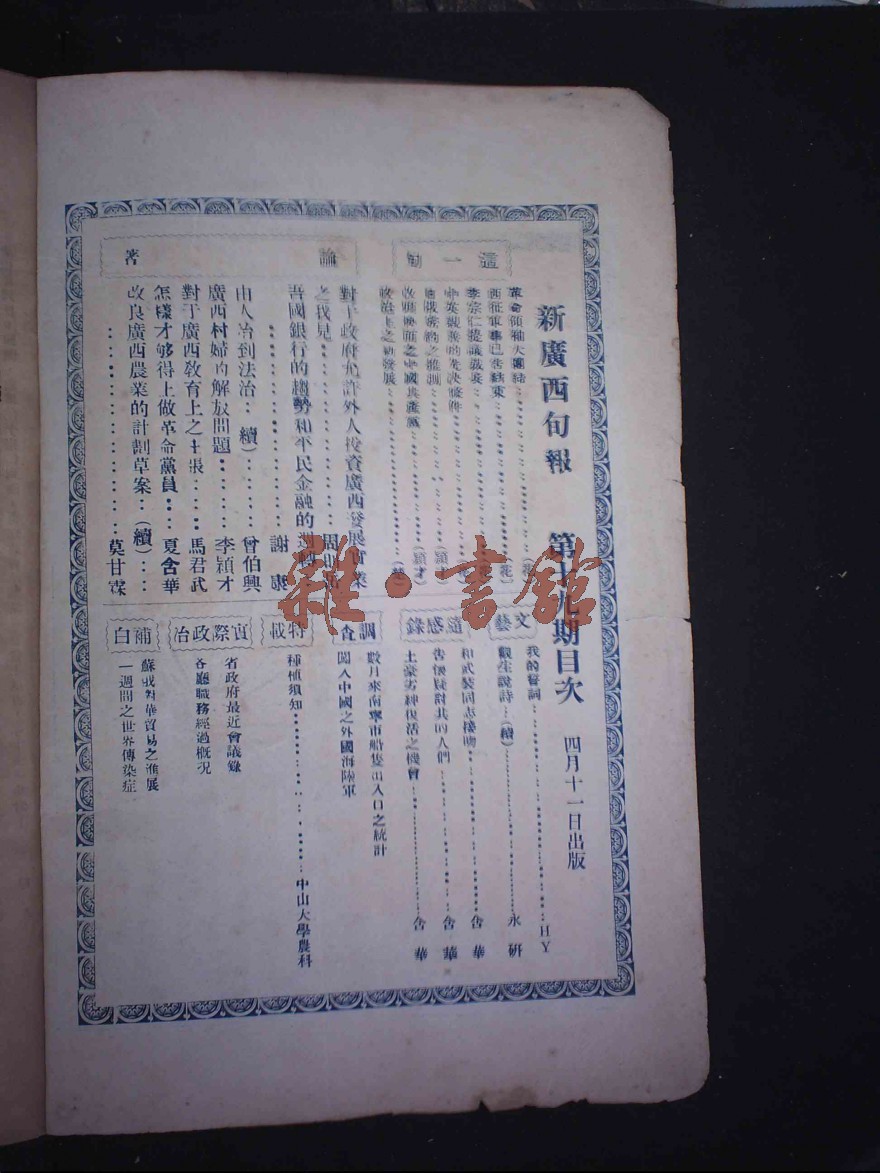 新廣西旬報　第十九期目次　四月十一日出版
這一旬
革命領袖大團結
西征軍事已告結束
李宗仁提議裁兵
政治上之新發展
論著
對于政府允許外人投資廣西發展實業
之我見
吾國銀行的趨勢和平民金融的
謝康
由人治到法治（續）曾伯興
廣西村婦的解放問題 李穎才
對于廣西敎育上之主張 馬君武
怎樣才够得上做革命黨員 夏含華
改良廣西農業的計劃草案（續）
莫甘霖
文藝
我的誓詞 H Y
觀生說詩（續） 永研
隨感錄
和武裝同志 含華
告懷疑討共的人們 含華
土豪劣紳復活之機會 含華
調查
數月來南寧市船隻出入口之統計
闖入中國之外國海陸軍
特載
種植須知 中山大學農科
實際政治
省政府最近會議錄
各廳職務經過概況
補白
蘇俄對華貿易之進展
一週間之世界傳染症
雜·書館